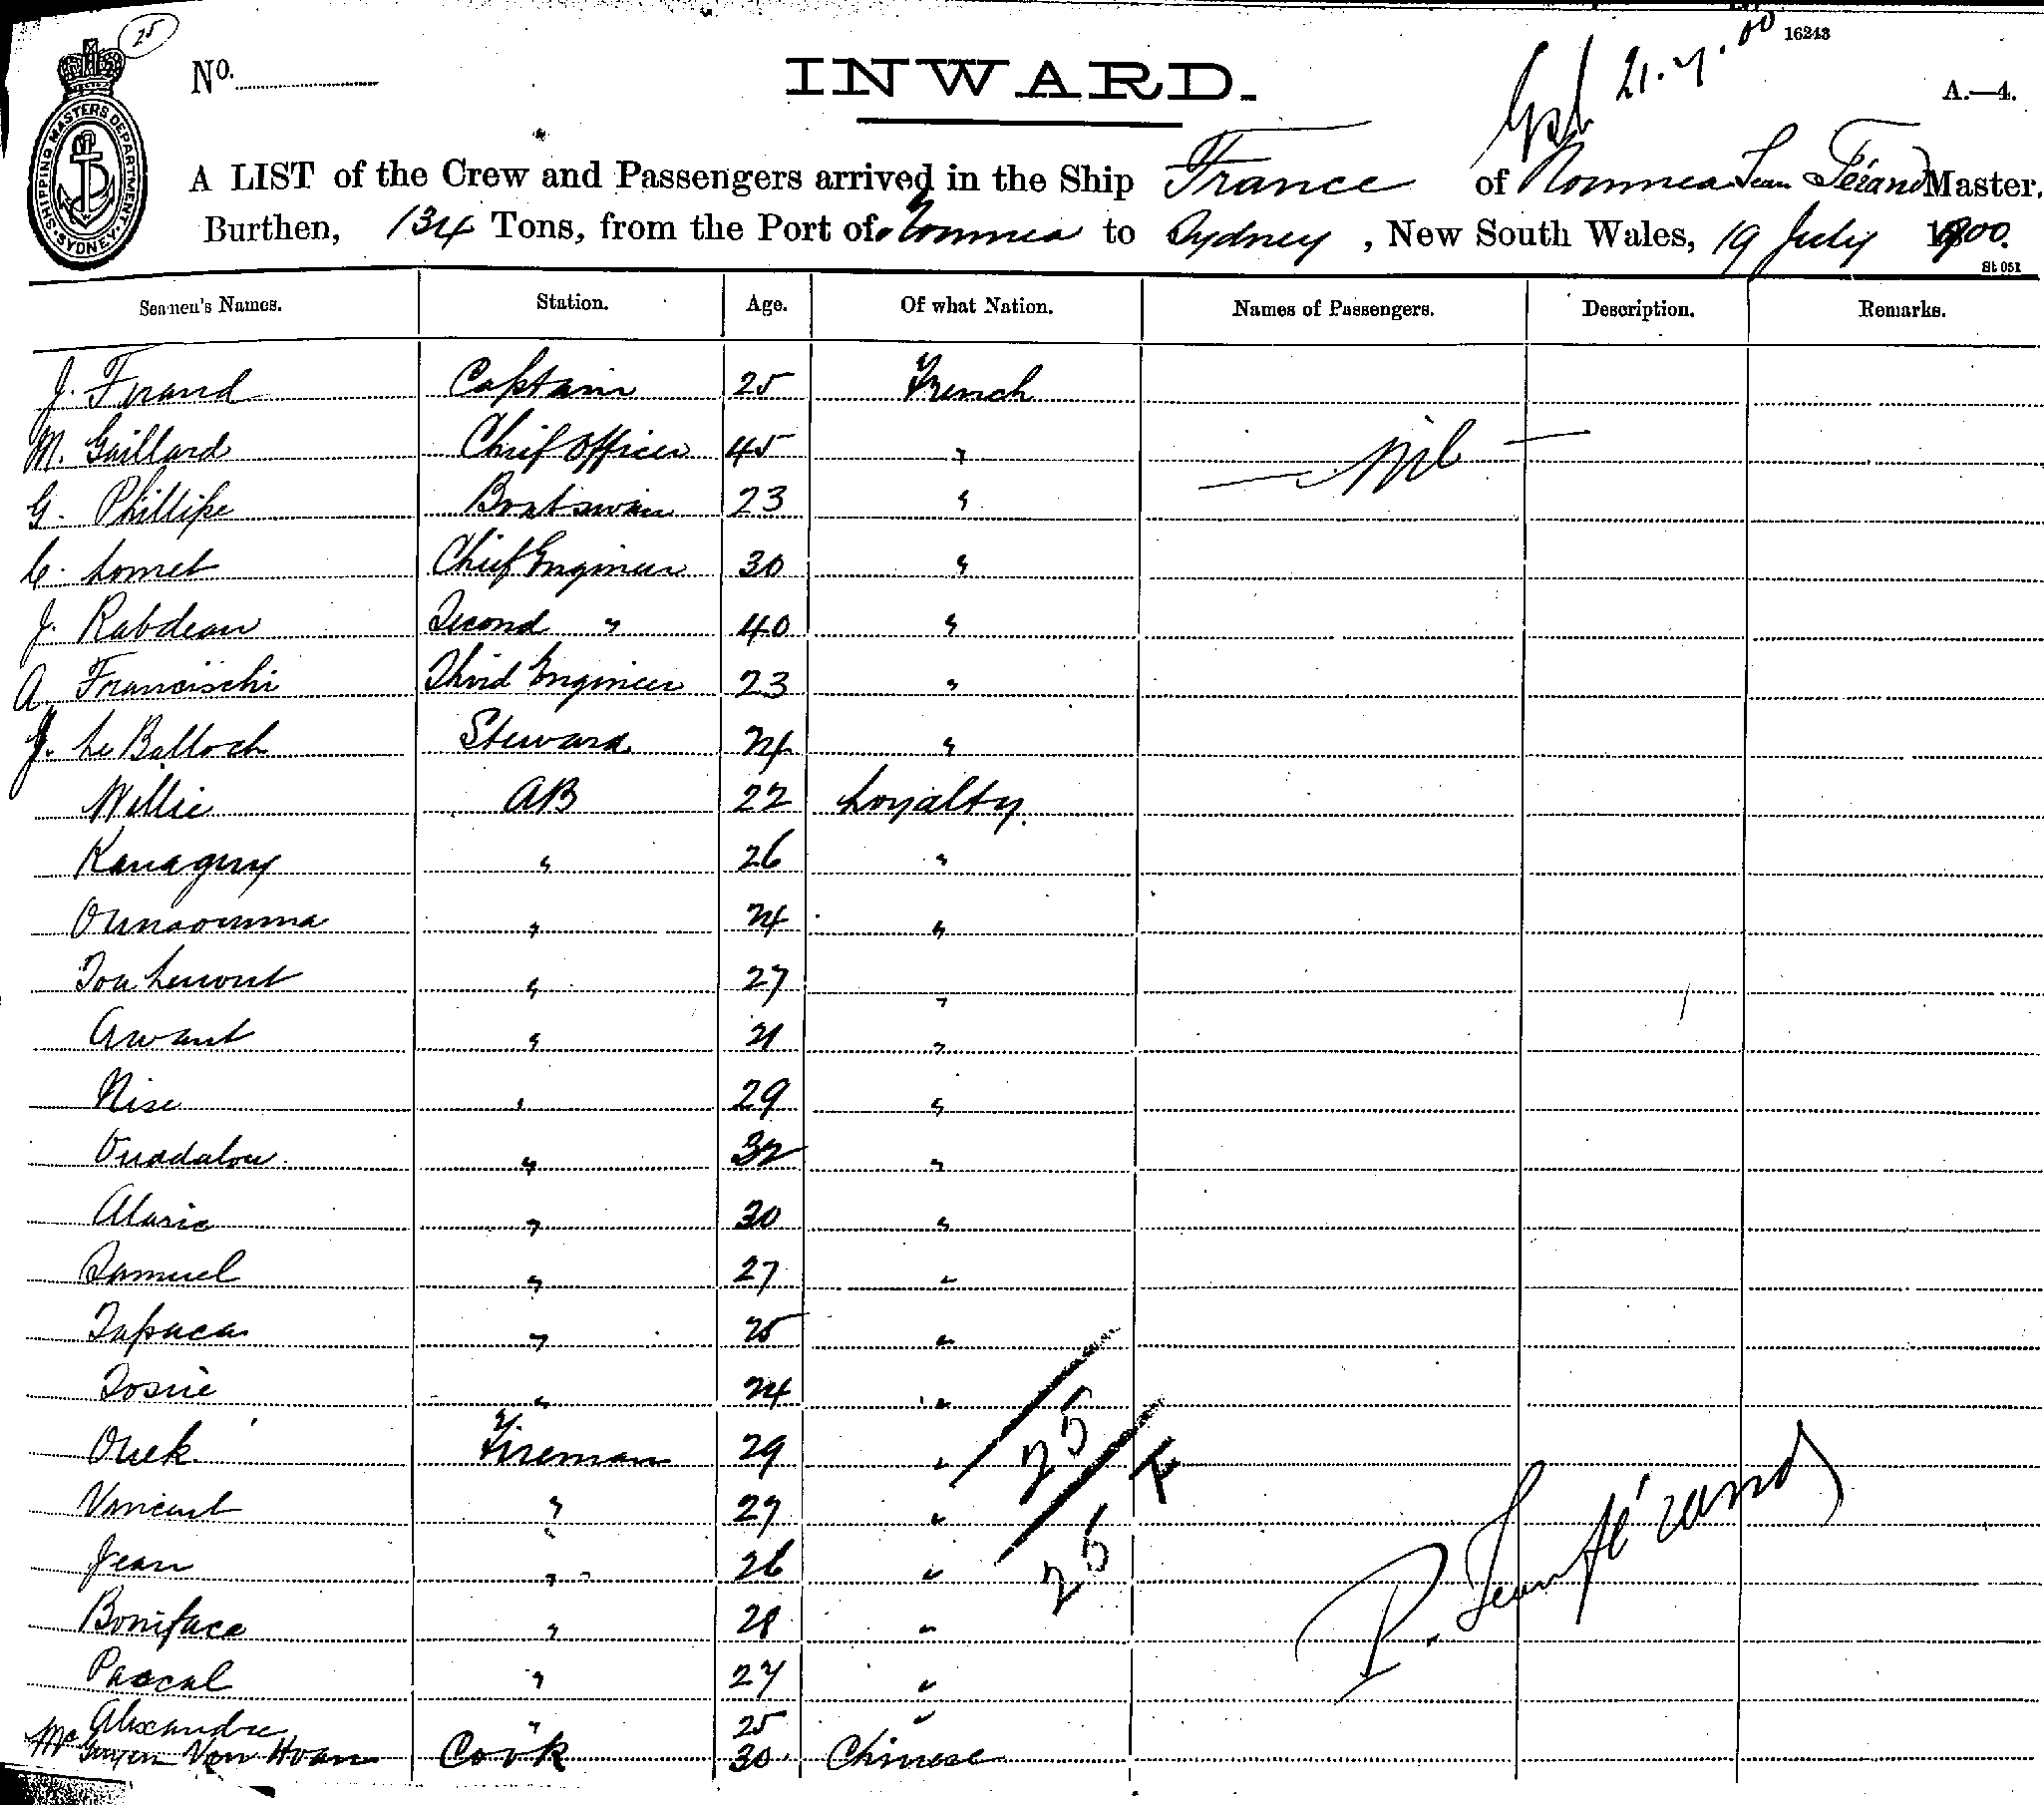 25
16243
No.
INWARD.
21.7.00
A.—4.
SHIPPING MASTERS DEPARTMENT SYDNEY
A LIST of the Crew and Passengers arrived in the Ship France of Noumea Jean Férand Master.
Burthen, 134 Tons, from the Port of Noumea to Sydney, New South Wales, 19 July 1900.
St 051
Seamen's Names. Station. Age. Of what Nation. Names of Passengers. Description. Remarks.
J. Ferand Captain 25 French
M. Gaillard Chief Officer 45 " — Nil —
G. Phillipe Boatswain 23 "
C. Lomet Chief Engineer 30 "
J. Rabdeau Second " 40 "
A. Francischi Third Engineer 23 "
J. Le Balloch Steward 24 "
Willie AB 22 Loyalty
" 26 "
" 24 "
" 27 "
" 21 "
Nise " 29 "
Ouadalou " 32 "
Alaric " 30 "
Samuel " 27 "
" 25 "
Josué " 24 "
Ouek Fireman 29 "
Vincent " 27 "
Jean " 26 "
Boniface " 28 "
Pascal " 27 "
Alexandre " 25 "
Van Hoan Cook 30 Chinese
25
25
P. Jean Férand